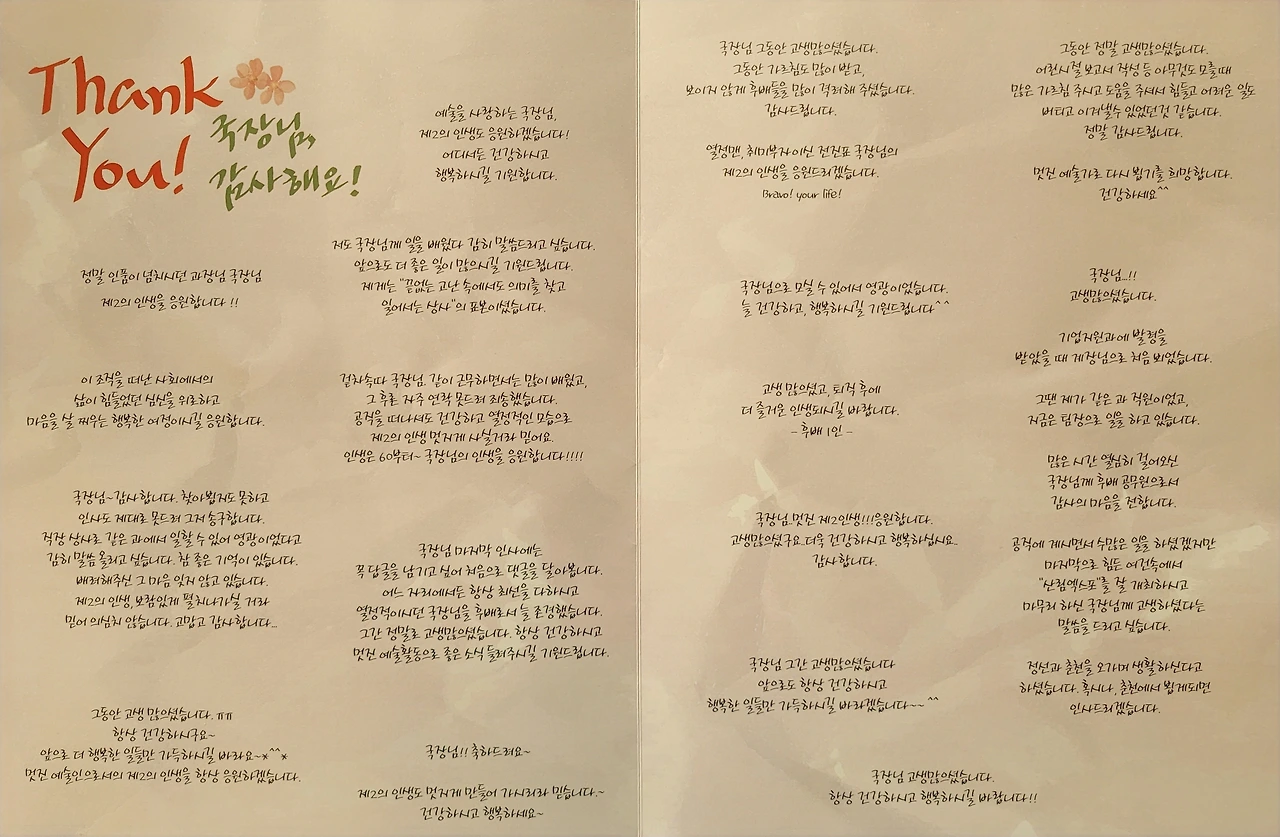 Thank
You!
국장님,
감사해요!
예술을 사랑하는 국장님,
제2의 인생도 응원하겠습니다!
어디서든 건강하시고
행복하시길 기원합니다.
정말 인품이 넘치시던 과장님 국장님
제2의 인생을 응원합니다 !!
저도 국장님께 일을 배웠다 감히 말씀드리고 싶습니다.
앞으로도 더 좋은 일이 많으시길 기원드립니다.
제게는 "끝없는 고난 속에서도 의미를 찾고
일어서는 상사"의 표본이셨습니다.
이 조직을 떠난 사회에서의
삶이 힘들었던 심신을 위로하고
마음을 살 찌우는 행복한 여정이시길 응원합니다.
겉차속따 국장님. 같이 근무하면서는 많이 배웠고,
그 후론 자주 연락 못드려 죄송했습니다.
공직을 떠나셔도 건강하고 열정적인 모습으로
제2의 인생 멋지게 사실거라 믿어요.
인생은 60부터~ 국장님의 인생을 응원합니다!!!!
국장님~감사합니다. 찾아뵙지도 못하고
인사도 제대로 못드려 그저 송구합니다.
직장 상사로 같은 과에서 일할 수 있어 영광이었다고
감히 말씀 올리고 싶습니다. 참 좋은 기억이 있습니다.
배려해주신 그 마음 잊지 않고 있습니다.
제2의 인생, 보람있게 펼치나가실 거라
믿어 의심치 않습니다. 고맙고 감사합니다...
국장님 마지막 인사에는
꼭 답글을 남기고 싶어 처음으로 댓글을 달아봅니다.
어느 자리에서든 항상 최선을 다하시고
열정적이시던 국장님을 후배로서 늘 존경했습니다.
그간 정말로 고생많으셨습니다. 항상 건강하시고
멋진 예술활동으로 좋은 소식 들려주시길 기원드립니다.
그동안 고생 많으셨습니다. ㅠㅠ
항상 건강하시구요~
앞으로 더 행복한 일들만 가득하시길 바라요~*^^*
멋진 예술인으로서의 제2의 인생을 항상 응원하겠습니다.
국장님!! 축하드려요~
제2의 인생도 멋지게 만들어 가시리라 믿습니다.~
건강하시고 행복하세요~
국장님 그동안 고생많으셨습니다.
그동안 가르침도 많이 받고,
보이지 않게 후배들을 많이 격려해 주셨습니다.
감사드립니다.
열정맨, 취미부자이신 전진표 국장님의
제2의 인생을 응원드리겠습니다.
Bravo! your life!
국장님으로 모실 수 있어서 영광이었습니다.
늘 건강하고, 행복하시길 기원드립니다^^
고생 많으셨고, 퇴직 후에
더 즐거운 인생되시길 바랍니다.
- 후배 1인 -
국장님..멋진 제2인생!!!응원합니다.
고생많으셨구요..더욱 건강하시고 행복하십시요..
감사합니다.
국장님 그간 고생많으셨습니다
앞으로도 항상 건강하시고
행복한 일들만 가득하시길 바라겠습니다~~^^
그동안 정말 고생많으셨습니다.
어린시절 보고서 작성 등 아무것도 모를때
많은 가르침 주시고 도움을 주셔서 힘들고 어려운 일도
버티고 이겨낼수 있었던것 같습니다.
정말 감사드립니다.
멋진 예술가로 다시 뵙기를 희망합니다.
건강하세요^^
국장님...!!
고생많으셨습니다.
기업지원과에 발령을
받았을 때 계장님으로 처음 뵈었습니다.
그땐 제가 같은 과 직원이었고,
지금은 팀장으로 일을 하고 있습니다.
많은 시간 열심히 걸어오신
국장님께 후배 공무원으로서
감사의 마음을 전합니다.
공직에 계시면서 수많은 일을 하셨겠지만
마지막으로 힘든 여건속에서
"산림엑스포"를 잘 개최하시고
마무리 하신 국장님께 고생하셨다는
말씀을 드리고 싶습니다.
정선과 춘천을 오가며 생활하신다고
하셨습니다. 혹시나, 춘천에서 뵙게되면
인사드리겠습니다.
국장님 고생많으셨습니다.
항상 건강하시고 행복하시길 바랍니다!!